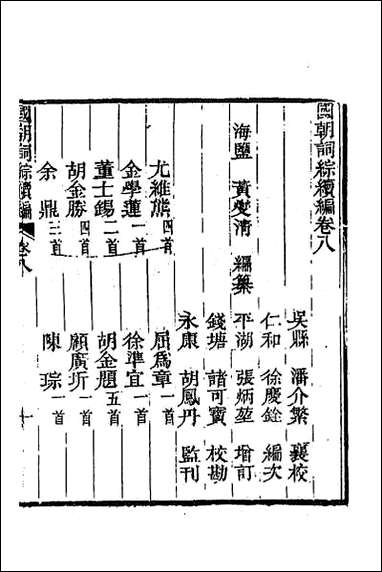 國朝詞綜續編卷八
海鹽 黃燮清 編纂
吳縣 潘介繁 襄校
仁和 徐慶銓 編次
平湖 張炳堃 增訂
錢塘 諸可寶 校勘
永康 胡鳳丹 監刊
尤維熊四首 屈爲章一首
金學蓮一首 徐準宜一首
董士錫二首 胡金題五首
胡金勝四首 顧廣圻一首
余鼎三首 陳琮一首
國朝詞綜續編 卷八 一